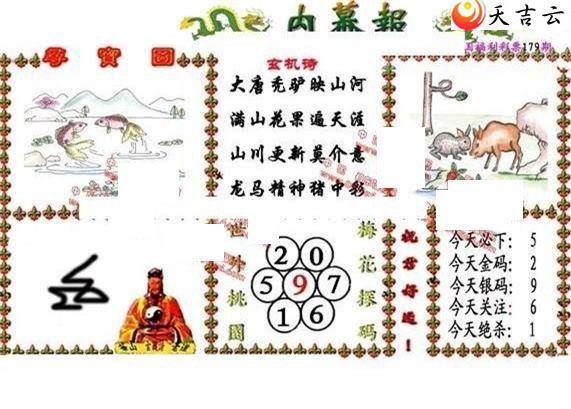 内幕報
天吉云
国福利彩票179期
寻寳圖
玄机诗
大唐秃驴映山河
满山花果遍天涯
山川更新莫介意
龙马精神猪中彩
世外桃園
2 0
5 9 7
1 6
梅花探碼
祝君好运!
今天必下: 5
今天金码: 2
今天银码: 9
今天关注: 6
今天绝杀: 1